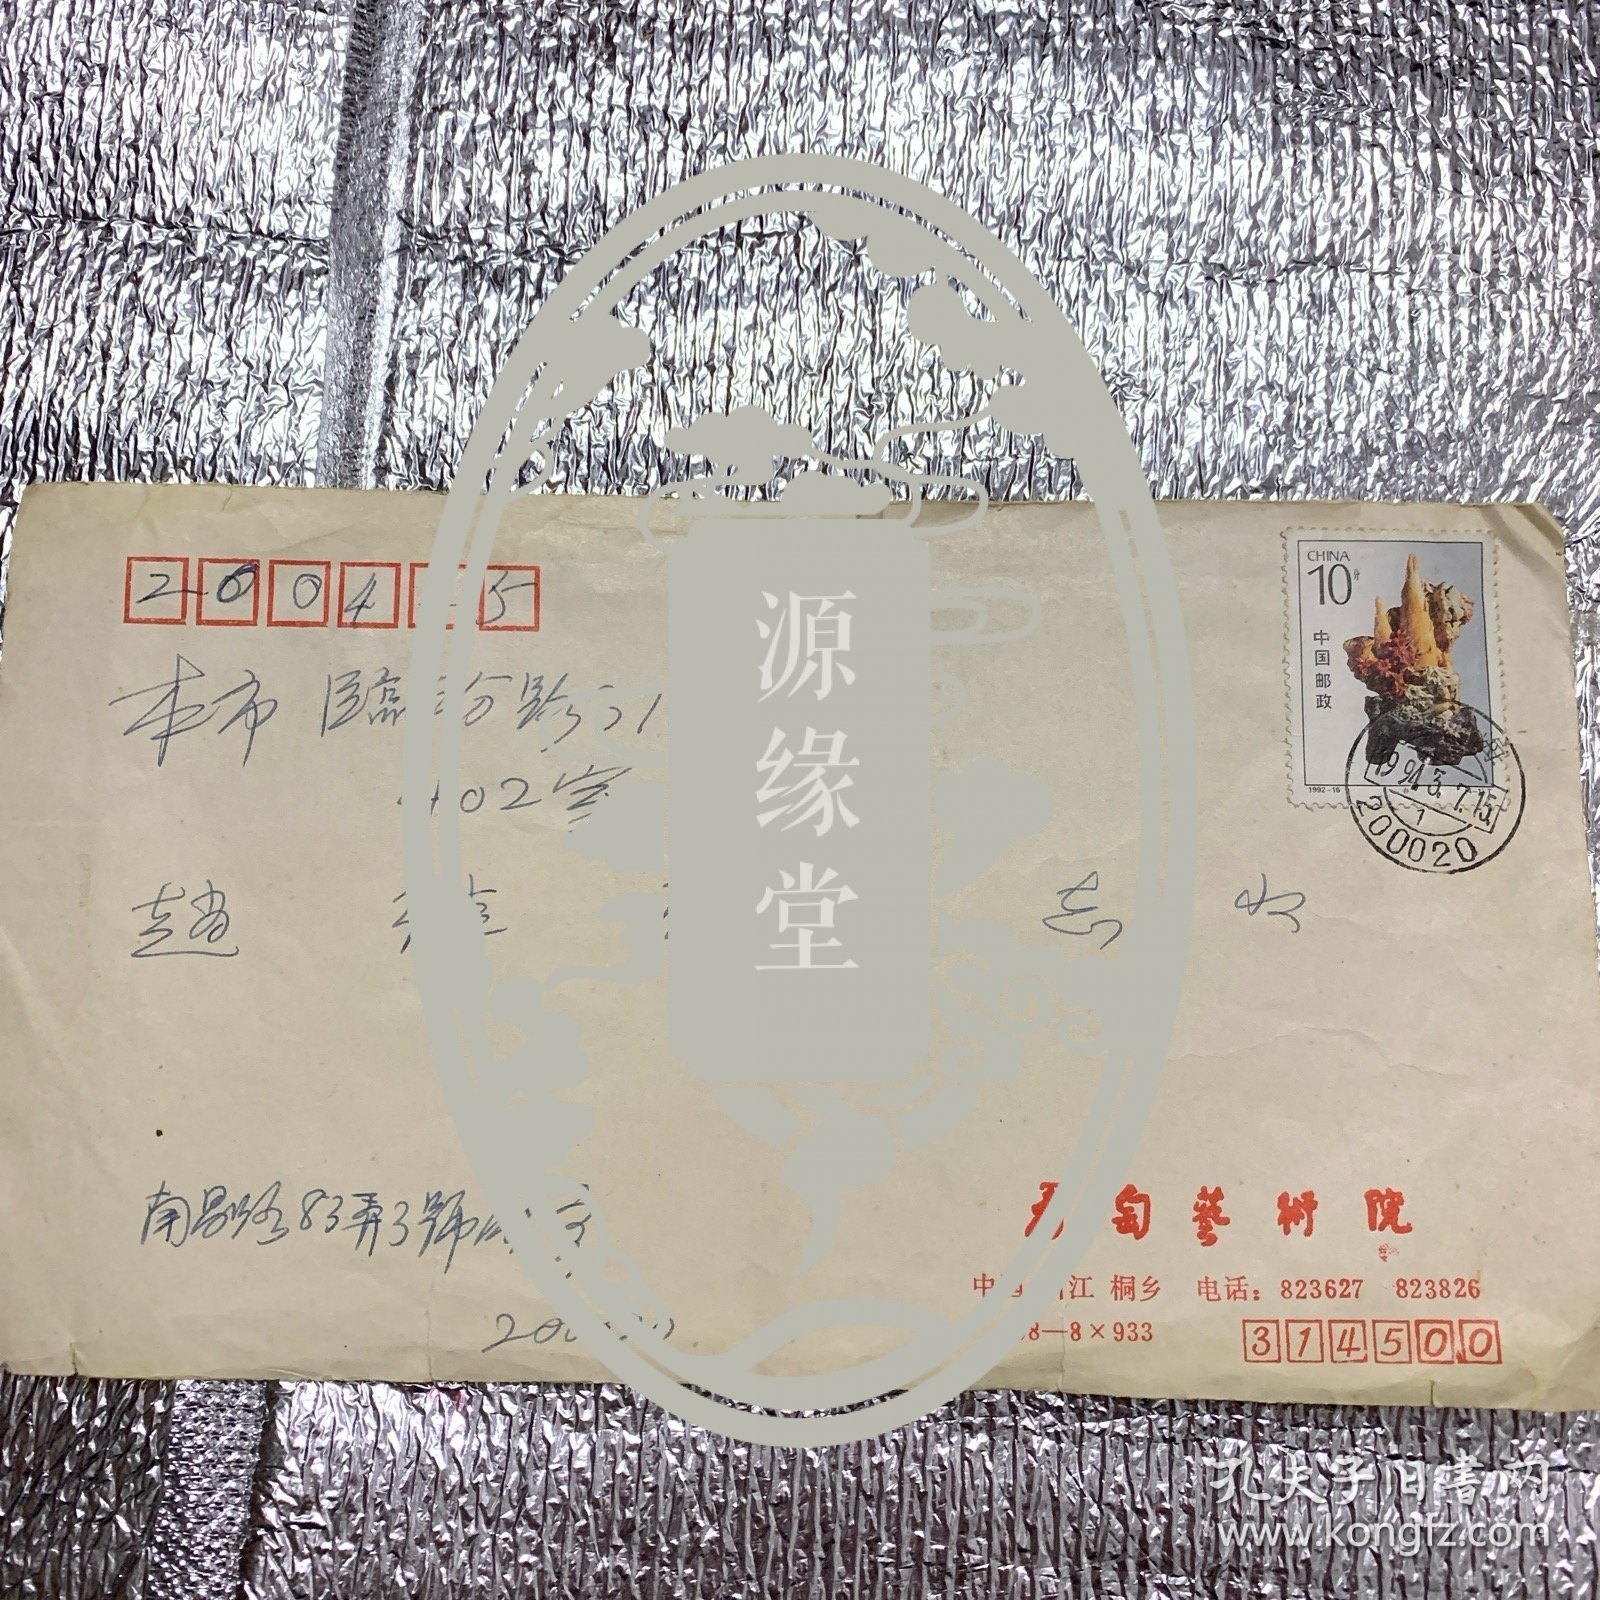 CHINA
10分
中国邮政
1992-16
1994.3.7.15
1
200020
2004 5
本市 臨汾路
402室
趙
志 收
南昌路83弄3號
匋藝術院
中 江 桐乡 电话：823627 823826
8—8×933
314500
源缘堂
孔夫子旧书网
www.kongfz.com